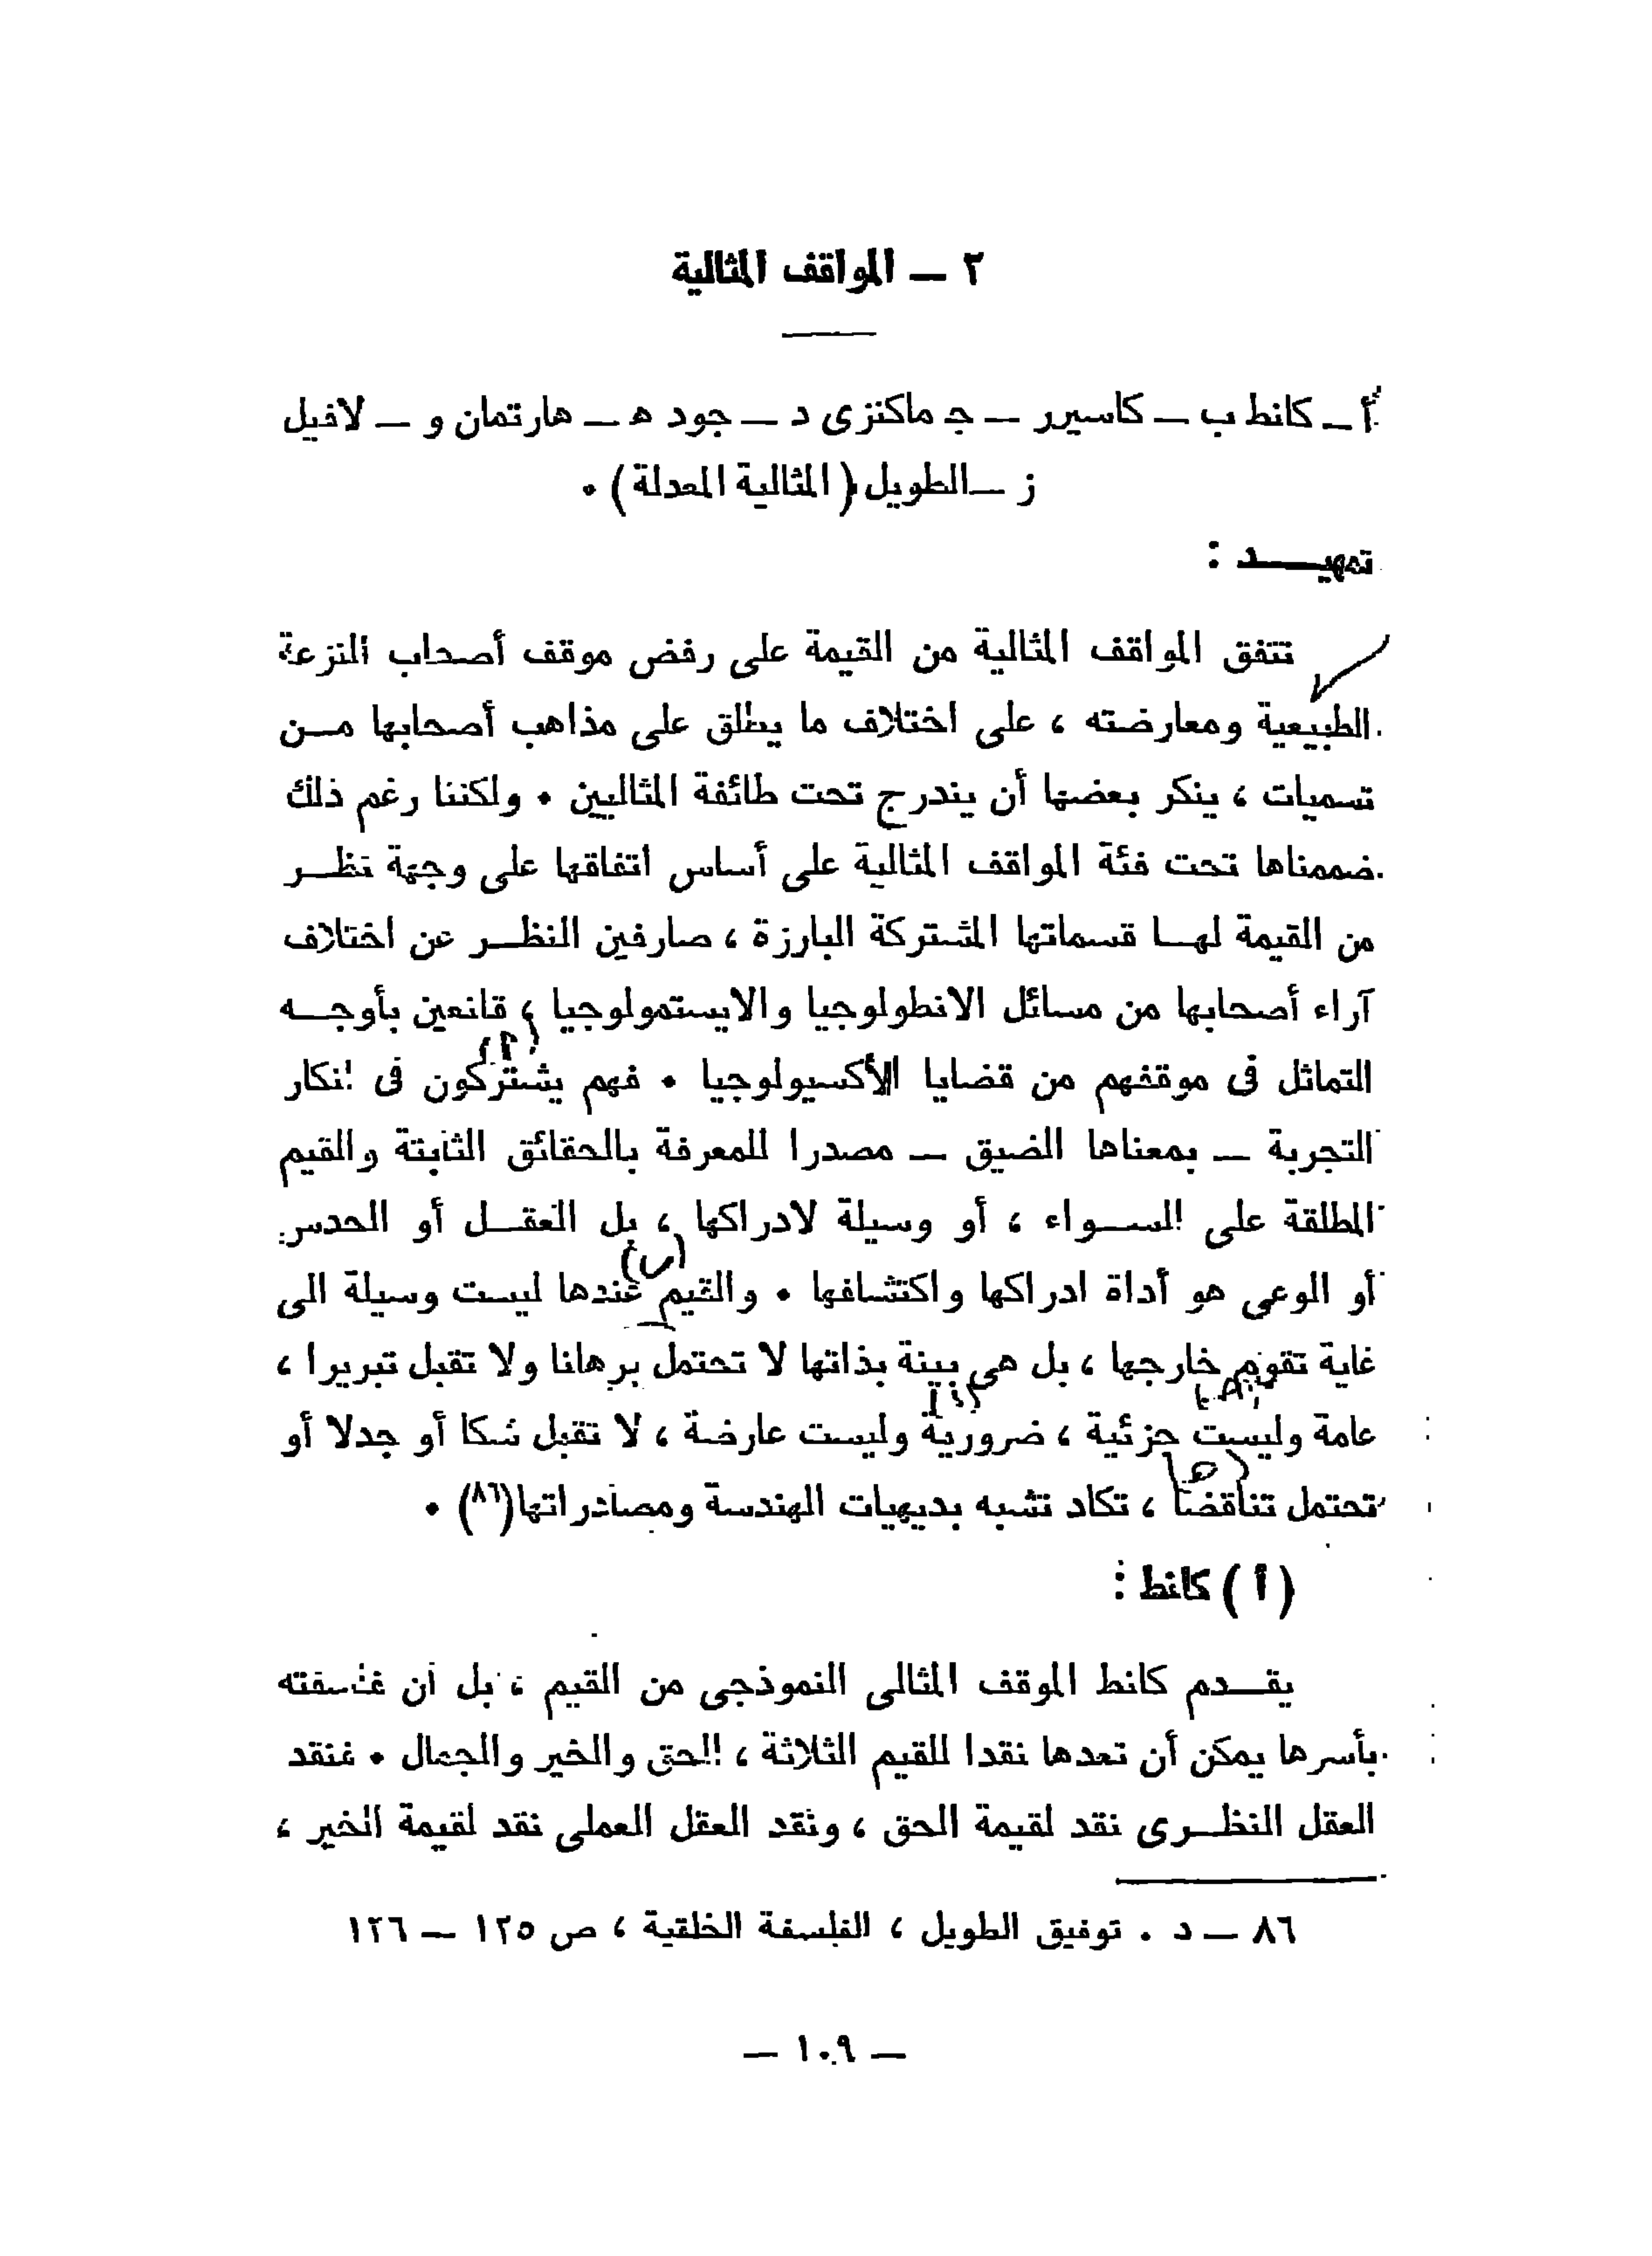 ٢ — المواقف المثالية
أ — كانط ب — كاسيرر — ج ماكنزى د — جود ه — هارتمان و — لافيل
ز — الطويل (المثالية المعدلة) ٠
تمهيـــد :
تتفق المواقف المثالية من القيمة على رفض موقف أصحاب النزعة
الطبيعية ومعارضته ، على اختلاف ما يطلق على مذاهب أصحابها مــن
تسميات ، ينكر بعضها أن يندرج تحت طائفة المثاليين ٠ ولكننا رغم ذلك
ضممناها تحت فئة المواقف المثالية على أساس اتفاقها على وجهة نظــر
من القيمة لهــا قسماتها المشتركة البارزة ، صارفين النظــر عن اختلاف
آراء أصحابها من مسائل الانطولوجيا والايستمولوجيا ، قانعين بأوجــه
التماثل فى موقفهم من قضايا الأكسيولوجيا ٠ فهم يشتركون فى انكار
التجربة — بمعناها الضيق — مصدرا للمعرفة بالحقائق الثابتة والقيم
المطلقة على الســواء ، أو وسيلة لادراكها ، بل العقــل أو الحدس
أو الوعى هو أداة ادراكها واكتشافها ٠ والقيم عندها ليست وسيلة الى
غاية تقوم خارجها ، بل هى بينة بذاتها لا تحتمل برهانا ولا تقبل تبريرا ،
عامة وليست جزئية ، ضرورية وليست عارضة ، لا تقبل شكا أو جدلا أو
تحتمل تناقضا ، تكاد تشبه بديهيات الهندسة ومصادراتها(٨٦) ٠
( أ ) كانط :
يقــدم كانط الموقف المثالى النموذجى من القيم ، بل ان فلسفته
بأسرها يمكن أن تعدها نقدا للقيم الثلاثة ، الحق والخير والجمال ٠ فنقد
العقل النظــرى نقد لقيمة الحق ، ونقد العقل العملى نقد لقيمة الخير ،
٨٦ — د ٠ توفيق الطويل ، الفلسفة الخلقية ، ص ١٢٥ — ١٢٦
— ١٠٩ —